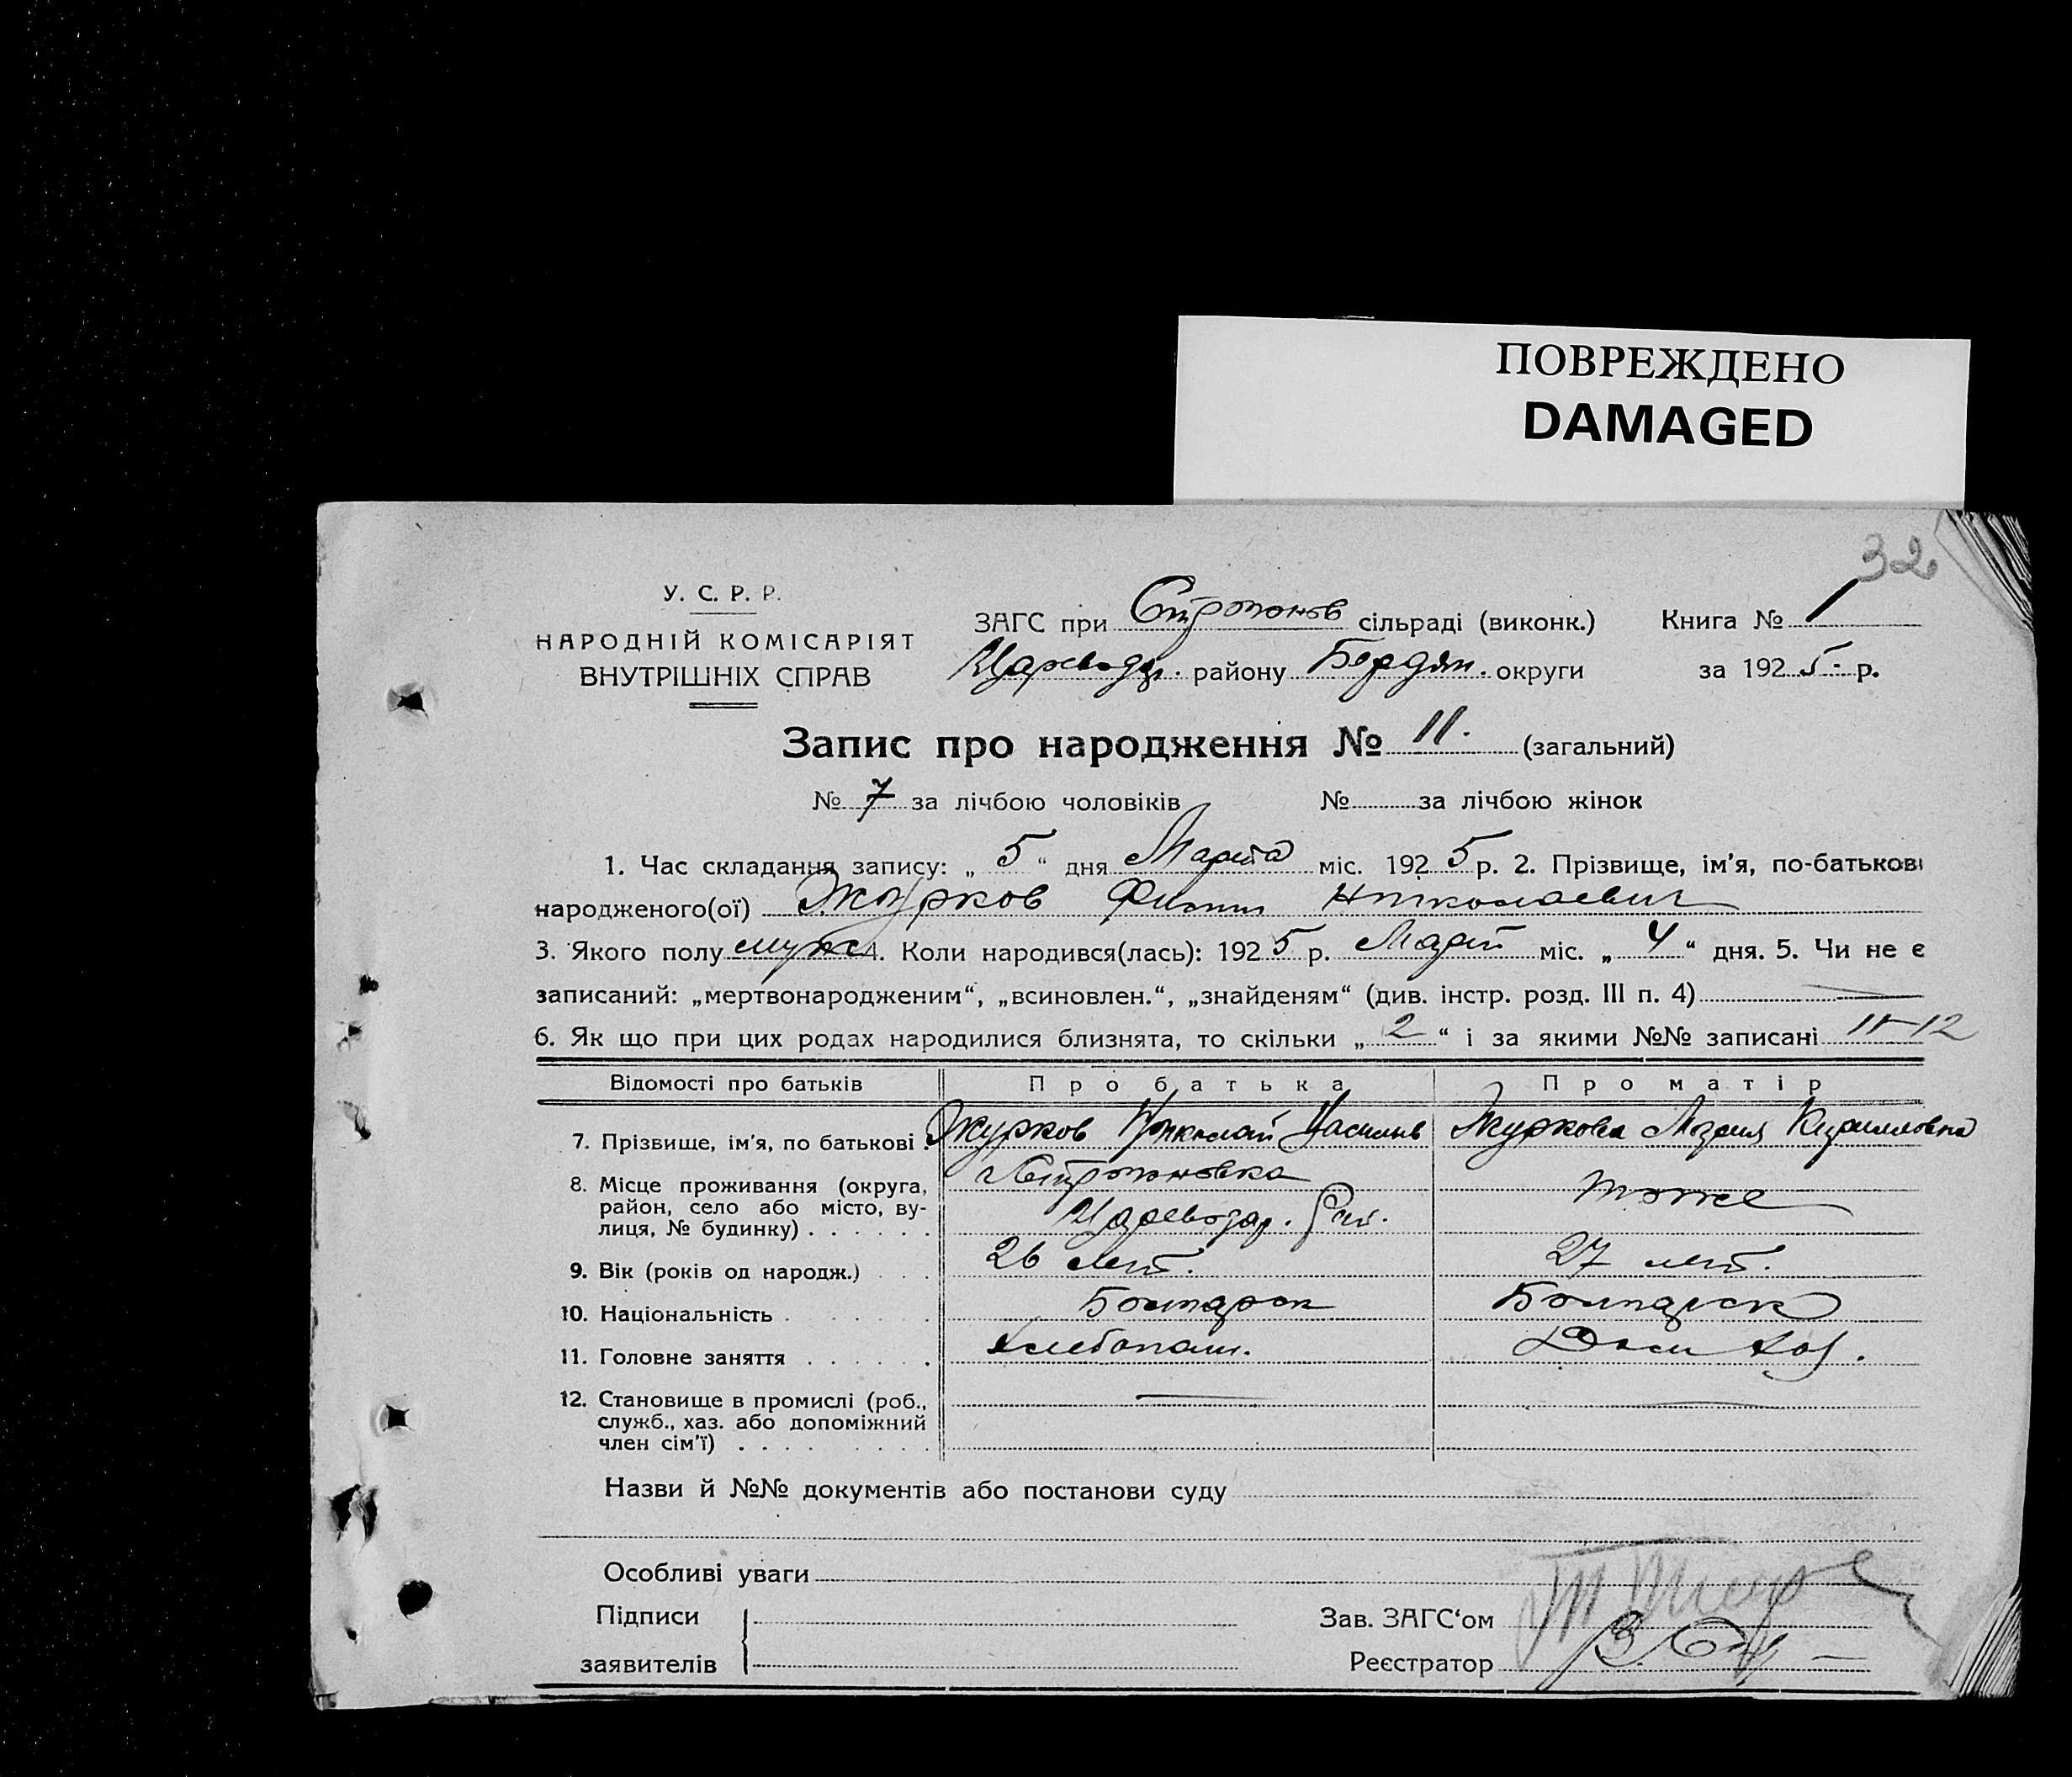 ПОВРЕЖДЕНО
DAMAGED
32
У. С. Р. Р.
НАРОДНІЙ КОМІСАРІЯТ
ВНУТРІШНІХ СПРАВ
ЗАГС при Строгонов сільраді (виконк.) Книга № 1
Цареводар. району Бердян. округи за 1925 р.
Запис про народження № 11. (загальний)
№ 7 за лічбою чоловіків № за лічбою жінок
1. Час складання запису: „ 5 “ дня Марта міс. 1925 р. 2. Прізвище, ім'я, по-батькові
народженого(ої) Журков Филип Николаевич
3. Якого полу муж 4. Коли народився(лась): 1925 р. Март міс. „ 4 “ дня. 5. Чи не є
записаний: „мертвонародженим“, „всиновлен.“, „знайденям“ (див. інстр. розд. III п. 4) —
6. Як що при цих родах народилися близнята, то скільки „ 2 “ і за якими №№ записані 11-12
Відомості про батьків Про батька Про матір
7. Прізвище, ім'я, по батькові Журков Николай Василев Журкова Мария Кирилловна
8. Місце проживання (округа, район, село або місто, вулиця, № будинку) . . . . . . Строгоновка Цареводар. Рай. тоже
9. Вік (років од народж.) . . . 26 лет. 27 лет.
10. Національність . . . . . . Болгарск Болгарск
11. Головне заняття . . . . . . Хлебопаш. Дом хоз.
12. Становище в промислі (роб., служб., хаз. або допоміжний член сім'ї) . . . . . . . . . — —
Назви й №№ документів або постанови суду
Особливі уваги
Підписи
заявителів
Зав. ЗАГС‘ом
Реєстратор